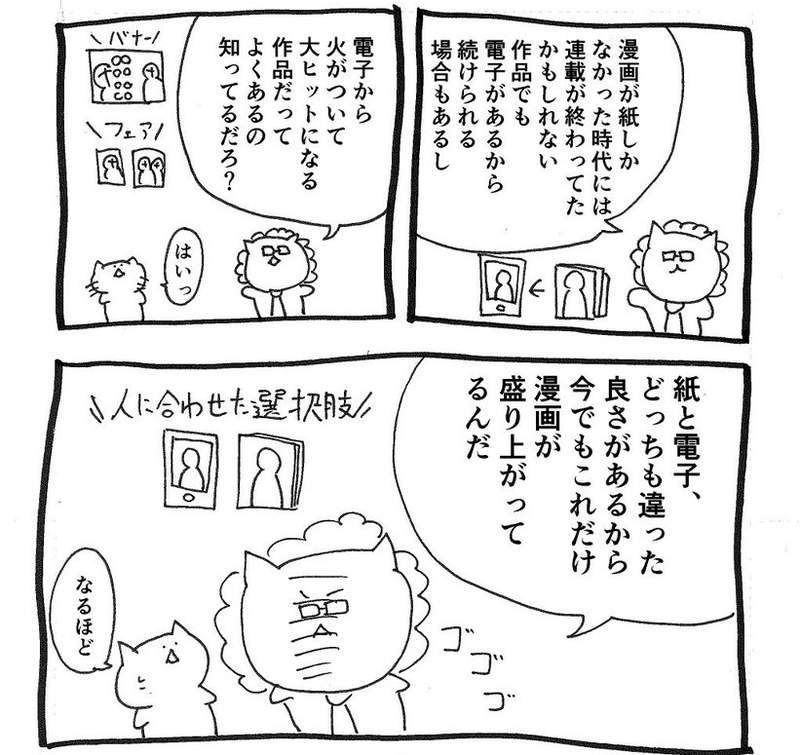 漫画が紙しか
なかった時代には
連載が終わってた
かもしれない
作品でも
電子があるから
続けられる
場合もあるし
電子から
火がついて
大ヒットになる
作品だって
よくあるの
知ってるだろ？
バナー
フェア
はいっ
紙と電子、
どっちも違った
良さがあるから
今でもこれだけ
漫画が
盛り上がって
るんだ
人に合わせた選択肢
なるほど
ゴ
ゴ
ゴ